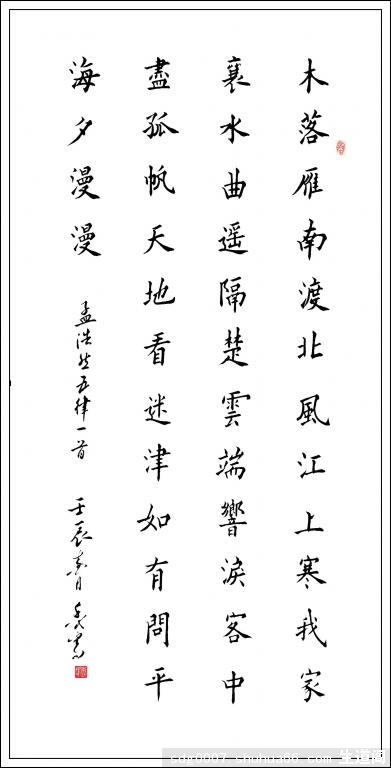 木落雁南渡北風江上寒我家
襄水曲遥隔楚雲端響淚客中
盡孤帆天地看迷津如有問平
海夕漫漫
孟浩然五律一首
壬辰
cdg0007.shuhua66.com